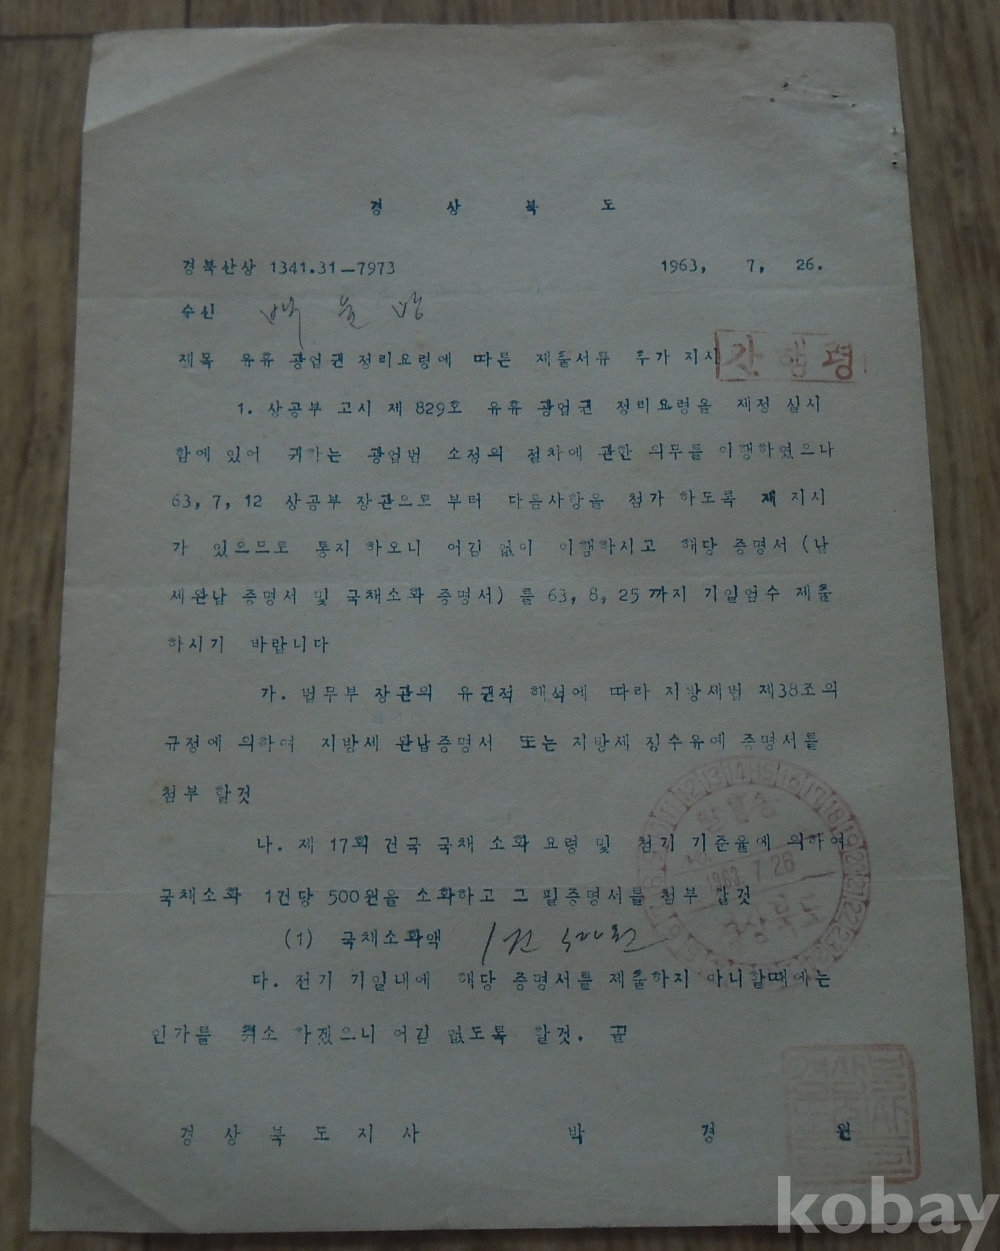 경 상 북 도
경북산상 1341.31-7973 1963, 7, 26.
수신
제목 유휴 광업권 정리요령에 따른 제출서류 추가 지시
간행령
1. 상공부 고시 제 829호 유휴 광업권 정리요령을 제정 실시
함에 있어 귀하는 광업법 소정의 절차에 관한 의무를 이행하였으나
63, 7, 12 상공부 장관으로 부터 다음사항을 첨가 하도록 재 지시
가 있으므로 통지 하오니 어김 없이 이행하시고 해당 증명서 (납
세완납 증명서 및 국채소화 증명서) 를 63, 8, 25 까지 기일엄수 제출
하시기 바랍니다
가. 법무부 장관의 유권적 해석에 따라 지방세법 제38조의
규정에 의하여 지방세 완납증명서 또는 지방세 징수유예 증명서를
첨부 할것
나. 제 17회 건국 국채 소화 요령 및 첨기 기준율에 의하여
국채소화 1건당 500원을 소화하고 그 필증명서를 첨부 할것
(1) 국채소화액 1건 500원
다. 전기 기일내에 해당 증명서를 제출하지 아니할때에는
인가를 취소 하겠으니 어김 없도록 할것. 끝
1963. 7. 26
경상북도
경 상 북 도 지 사 박 경 원
kobay